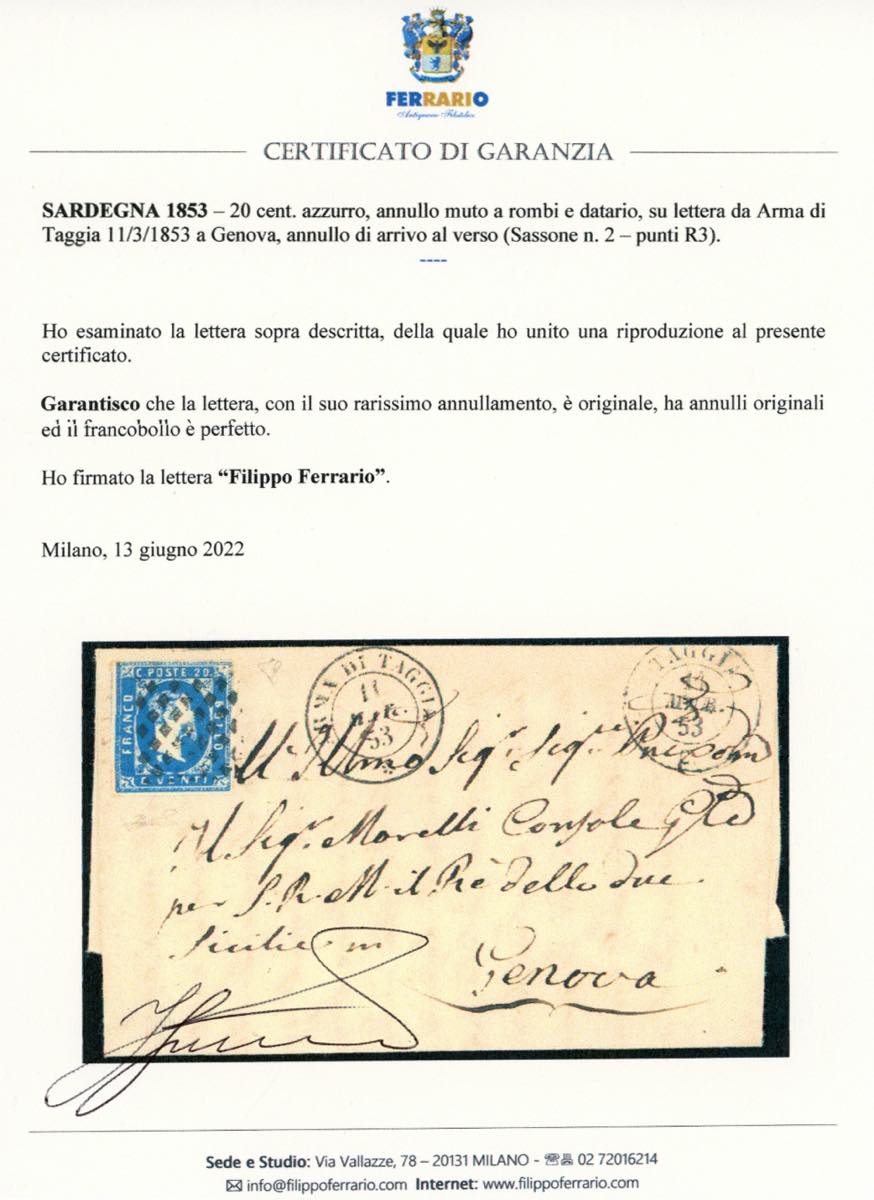 FERRARIO
Antiquariato Filatelico
CERTIFICATO DI GARANZIA
SARDEGNA 1853 – 20 cent. azzurro, annullo muto a rombi e datario, su lettera da Arma di
Taggia 11/3/1853 a Genova, annullo di arrivo al verso (Sassone n. 2 – punti R3).
----
Ho esaminato la lettera sopra descritta, della quale ho unito una riproduzione al presente
certificato.
Garantisco che la lettera, con il suo rarissimo annullamento, è originale, ha annulli originali
ed il francobollo è perfetto.
Ho firmato la lettera “Filippo Ferrario”.
Milano, 13 giugno 2022
C. POSTE 20.
FRANCO
BOLLO
C. VENTI
RMA DI TAGGIA
11
53
TAGGIA
MAR.
53
Ill'Illmo Sigr. Sigr.
Il Sigr. Morelli Console Gle
per S. R. M. il Rè delle due
Sicilie in
Genova
Sede e Studio: Via Vallazze, 78 – 20131 MILANO - ☏ 02 72016214
✉ info@filippoferrario.com Internet: www.filippoferrario.com